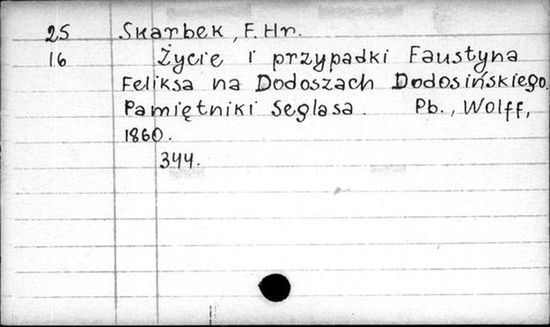 25 Skarbek, F. Hr.
16 Życie i przypadki Faustyna
Feliksa na Dodoszach Dodosińskiego.
Pamiętniki Seglasa. Pb., Wolff,
1860.
344.